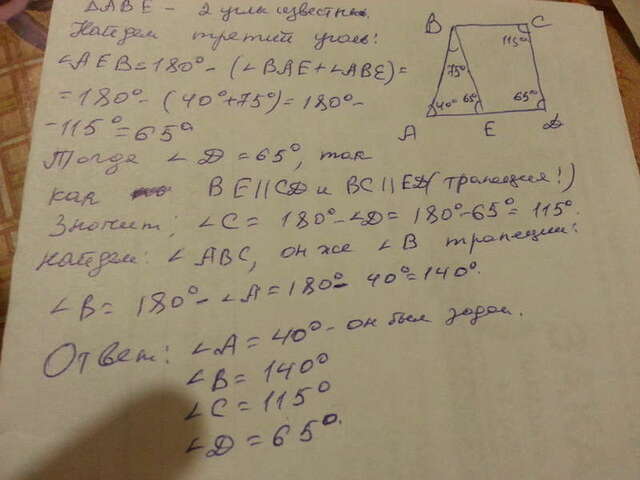 ΔABE - 2 углы известны.
Найдем третий угол:
∠AEB=180°-(∠BAE+∠ABE)=
=180°-(40°+75°)=180°-
-115°=65°
Тогда ∠D=65°, так
как BE||CD и BC||ED(трапеция!)
Значит, ∠C=180°-∠D=180°-65°=115°.
Найдем: ∠ABC, он же ∠B трапеции:
∠B=180°-∠A=180°-40°=140°.
Ответ: ∠A=40°-он был задан.
∠B=140°
∠C=115°
∠D=65°.
B C
115°
75°
40° 65° 65°
A E D